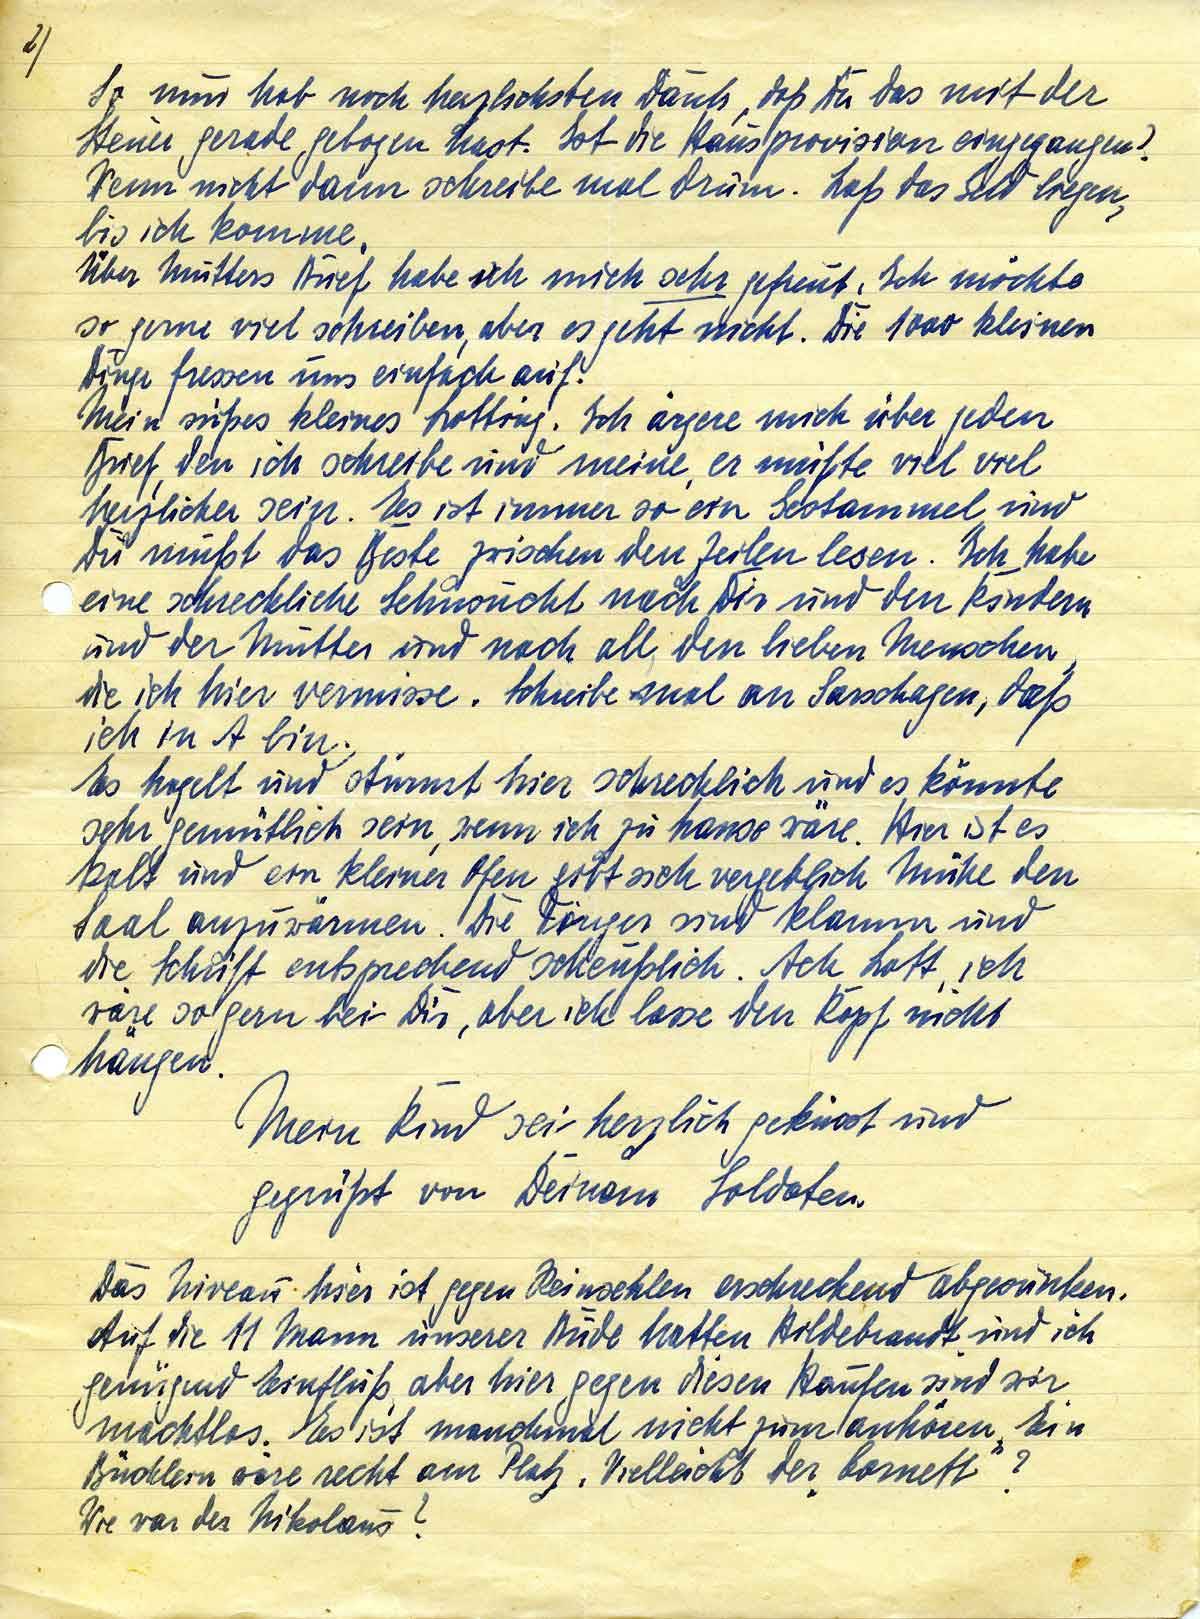 2)
So nun hab noch herzlichsten Dank, daß Du das mit der
Steuer gerade gebogen hast. Ist die Hausprovision eingegangen?
Wenn nicht dann schreibe mal drum. Laß das Geld liegen,
bis ich komme.
Über Mutters Brief habe ich mich sehr gefreut. Ich möchte
so gerne viel schreiben, aber es geht nicht. Die 1000 kleinen
Dinge fressen uns einfach auf.
Mein süßes kleines Lotting. Ich ärgere mich über jeden
Brief, den ich schreibe und meine, er müßte viel viel
herzlicher sein. Es ist immer so ein Gestammel und
Du mußt das Beste zwischen den Zeilen lesen. Ich habe
eine schreckliche Sehnsucht nach Dir und den Kindern
und der Mutter und nach all den lieben Menschen,
die ich hier vermisse. Schreibe mal an Sarshagen, daß
ich in A bin.
Es hagelt und stürmt hier schrecklich und es könnte
sehr gemütlich sein, wenn ich zu hause wäre. Hier ist es
kalt und ein kleiner Ofen gibt sich vergeblich Mühe den
Saal anzuwärmen. Die Finger sind klamm und
die Schrift entsprechend scheußlich. Ach Lott, ich
wäre so gern bei Dir, aber ich lasse den Kopf nicht
hängen.
Mein Kind sei herzlich geküsst und
gegrüßt von Deinem Soldaten.
Das Niveau hier ist gegen Reinsehlen erschreckend abgesunken.
Auf die 11 Mann unserer Bude hatten Hildebrandt und ich
genügend Einfluß, aber hier gegen diesen Haufen sind wir
machtlos. Es ist manchmal nicht zum anhören. Ein
Büchlein wäre recht am Platz. Vielleicht der „Cornett"?
Wie war der Nikolaus?